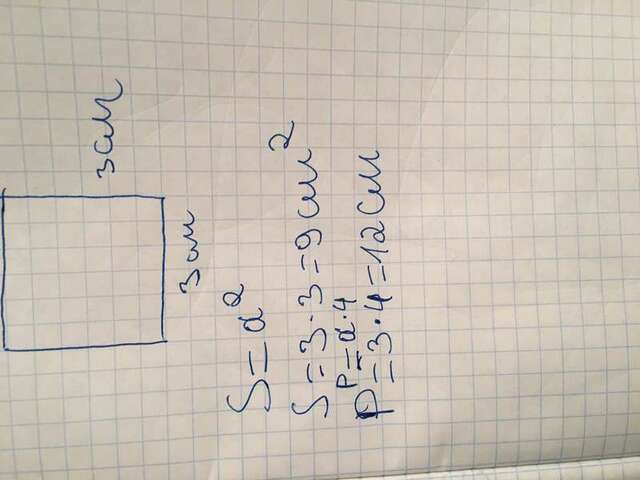 3 см
3 см
S=a²
S=3·3=9см²
P=a·4
P=3·4=12см